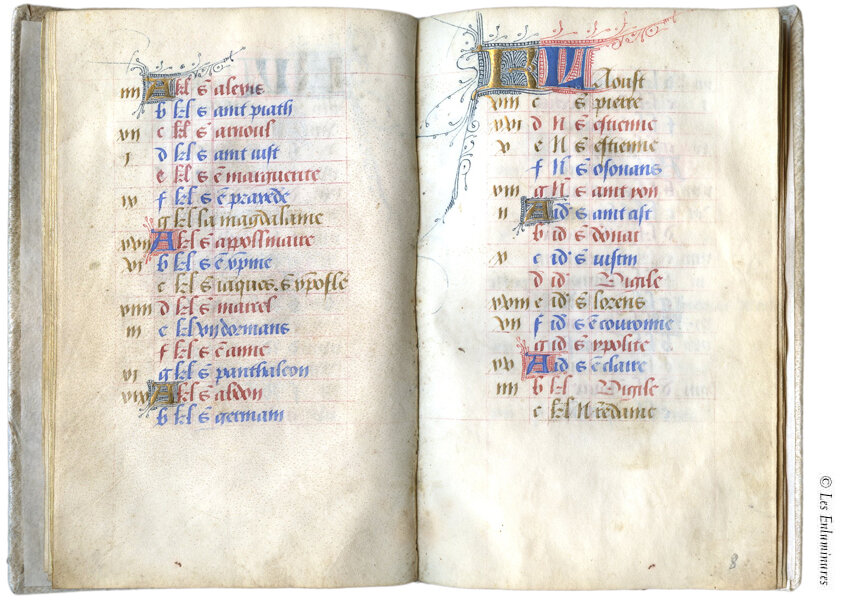 iiii A kl s alexis
b kl s amt piath
xii c kl s arnoul
i d kl s amt iust
e kl s e marguerite
ix f kl s e praxede
g kl la magdalaine
xvii A kl s appollinaire
vi b kl s e xpine
c kl s iaques. s xpofle
xiiii d kl s marcel
iii e kl vii dormans
f kl s e anne
xi g kl s panthaleon
xix A kl s abdon
b kl s germain
KL Aoust
viii c s pierre
xvi d N s estienne
v e N s estienne
f N s osouans
xiii g N s amt yon
ii A id s amt ast
b id s donat
x c id s iustin
d id Vigile
xviii e id s lorens
vii f id s e couronne
g id s ypolite
xv A id s e claire
iiii b kl Vigile
c kl N redame
8
© Les Enluminures